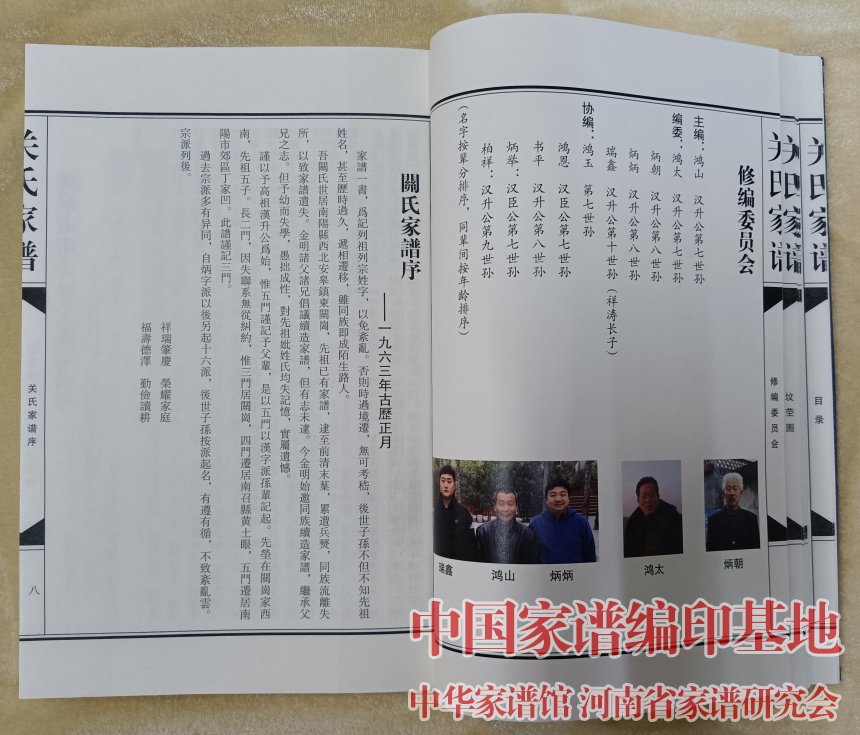 关氏家谱
目录
坟茔图
修编委员会
修编委员会
主编：鸿山 汉升公第七世孙
编委：鸿太 汉升公第七世孙
炳朝 汉升公第八世孙
炳炳 汉升公第八世孙
瑞鑫 汉升公第十世孙（祥涛长子）
协编：鸿玉 第七世孙
鸿恩 汉臣公第七世孙
书平 汉升公第八世孙
炳举：汉臣公第七世孙
柏祥：汉升公第九世孙
（名字按辈分排序，同辈间按年龄排序）
炳朝
鸿太
炳炳
鸿山
瑞鑫
關氏家譜序
——一九六三年古歷正月
家譜一書，爲記列祖列宗姓字，以免紊亂。否則時過境遷，無可考嵇，後世子孫不但不知先祖
姓名，甚至歷時過久、遞相遷移，雖同族即成陌生路人。
吾關氏世居南陽縣西北安皋鎮東關崗，先祖已有家譜，逮至前清末葉，累遭兵燹，同族流離失
所，以致家譜遺失。金明諸父諸兄倡議續造家譜，但有志未逮。今金明始邀同族續造家譜，繼承父
兄之志。但予幼而失學，愚拙成性，對先祖妣姓氏均失記憶，實屬遺憾。
謹以予高祖漢升公爲始，惟五門謹記予父輩，是以五門以漢字派孫輩記起。先塋在關崗家西
南，先祖五子。長二門，因失聯系無從糾約，惟三門居關崗，四門遷居南召縣黄土眼，五門遷居南
陽市郊區丁家凹。此譜謹記三門。
過去宗派多有异同，自炳字派以後另起十六派，後世子孫按派起名，有遵有循，不致紊亂雲。
宗派列後。
祥瑞肇慶 榮耀家庭
福壽德澤 勤儉讀耕
关氏家谱
关氏家谱序
八
中国家谱编印基地
中华家谱馆 河南省家谱研究会